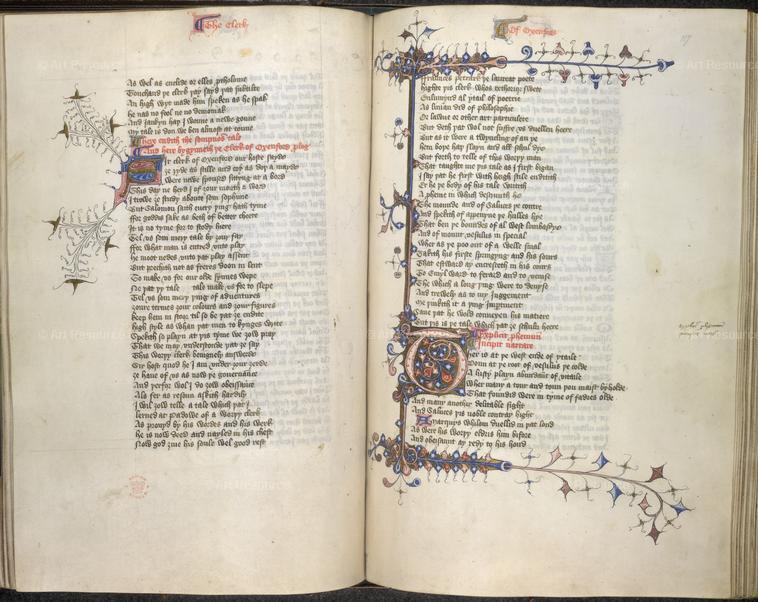 The Clerk
As wel as euclide or elles ptholome
Touchand ye clerk yay sayd yat subtilte
An high wyt made him speken as he spak
He nas no fool ne no demoniak
And Iankyn hap I wonne a newe goune
My tale is don we ben almost at toune
Here endith the sompnos tale
And here bygynneth ye Clerk of Oxenford
Sir clerk of Oxenford our hoste sayde
Ze ryde as stille and coy as doþ a mayde
Were newe spoused sittyng at a bord
This day ne herd I of zour mouth a word
I trowe ze study aboute som sophime
But Salomon saith euery þing haþ tyme
For goddis sake as beth of better cheere
It is no tyme for to study heere
Tel vs som mery tale by zour fay
For what man is entred vnto play
He moot nedes vnto þat play assent
But prechiþ not as freres doon in lent
To make vs for our olde synnes wepe
Ne þat þy tale make vs for to slepe
Tel vs som mery þing of aduentures
Zoure termes zour colours and zour figures
Keep hem in stoor til so be þat ze endite
High style as whan þat men to kynges write
Spekeþ so playn at þis tyme we zow pray
That we may vnderstonde þat ze say
This worþy Clerk benignely answerde
Sir host quod he I am vnder zour zerde
Ze haue of vs as now þe gouernance
And þerfor wol I do zow obeissance
Als fer as resoun asketh hardily
I wil zow telle a tale which þat I
Lerned at padowe of a worþy clerk
As proued by his wordes and his werk
He is now deed and nayled in his chest
Now god ziue his soule wel good rest
Of Oxenford
Fraunces petrark þe laureat poete
Highte þis clerk whos rethorique swete
Enlumynd al ytail of poetrie
As linian did of philosophie
Or lawe or other art particulere
But deth þat wol not suffre vs duellen heere
But as it were a twynclyng of an ye
Hem boþe haþ slayn and alle schul dye
But forth to telle of this worþy man
That taughte me þis tale as I first bigan
I say þat he first with heigh stile enditith
Er he þe body of his tale writith
A proheme in which descriuith he
The mounde and of Saluces þe contre
And spekith of appenyne þe hulles hye
That ben þe boundes of al west lombardye
And of mount vesulus in special
Wher as þe poo out of a welle smal
Takith his first springyng and his sours
That estward ay encresceth in his cours
To Emyl ward to ferare and to venise
The which a long þing were to deuyse
And trewely as to my iuggement
Me þinketh it a þing impertinent
Saue þat he wold conueyen his matiere
But þis is þe tale which þat ze schuln heere
Explicit prohemium
Incipit narracio
Ther is at þe west ende of ytaile
Doun at þe root of vesulus þe colde
A lusty playn abundant of vitaile
Wher many a tour and toun þou maist byholde
That founded were in tyme of fadres olde
And many anothir delitable sight
And Saluces þis noble contray hight
A marquys whilom duelled in þat lond
As were his worþy eldris him bifore
And obeissant ay redy to his hond